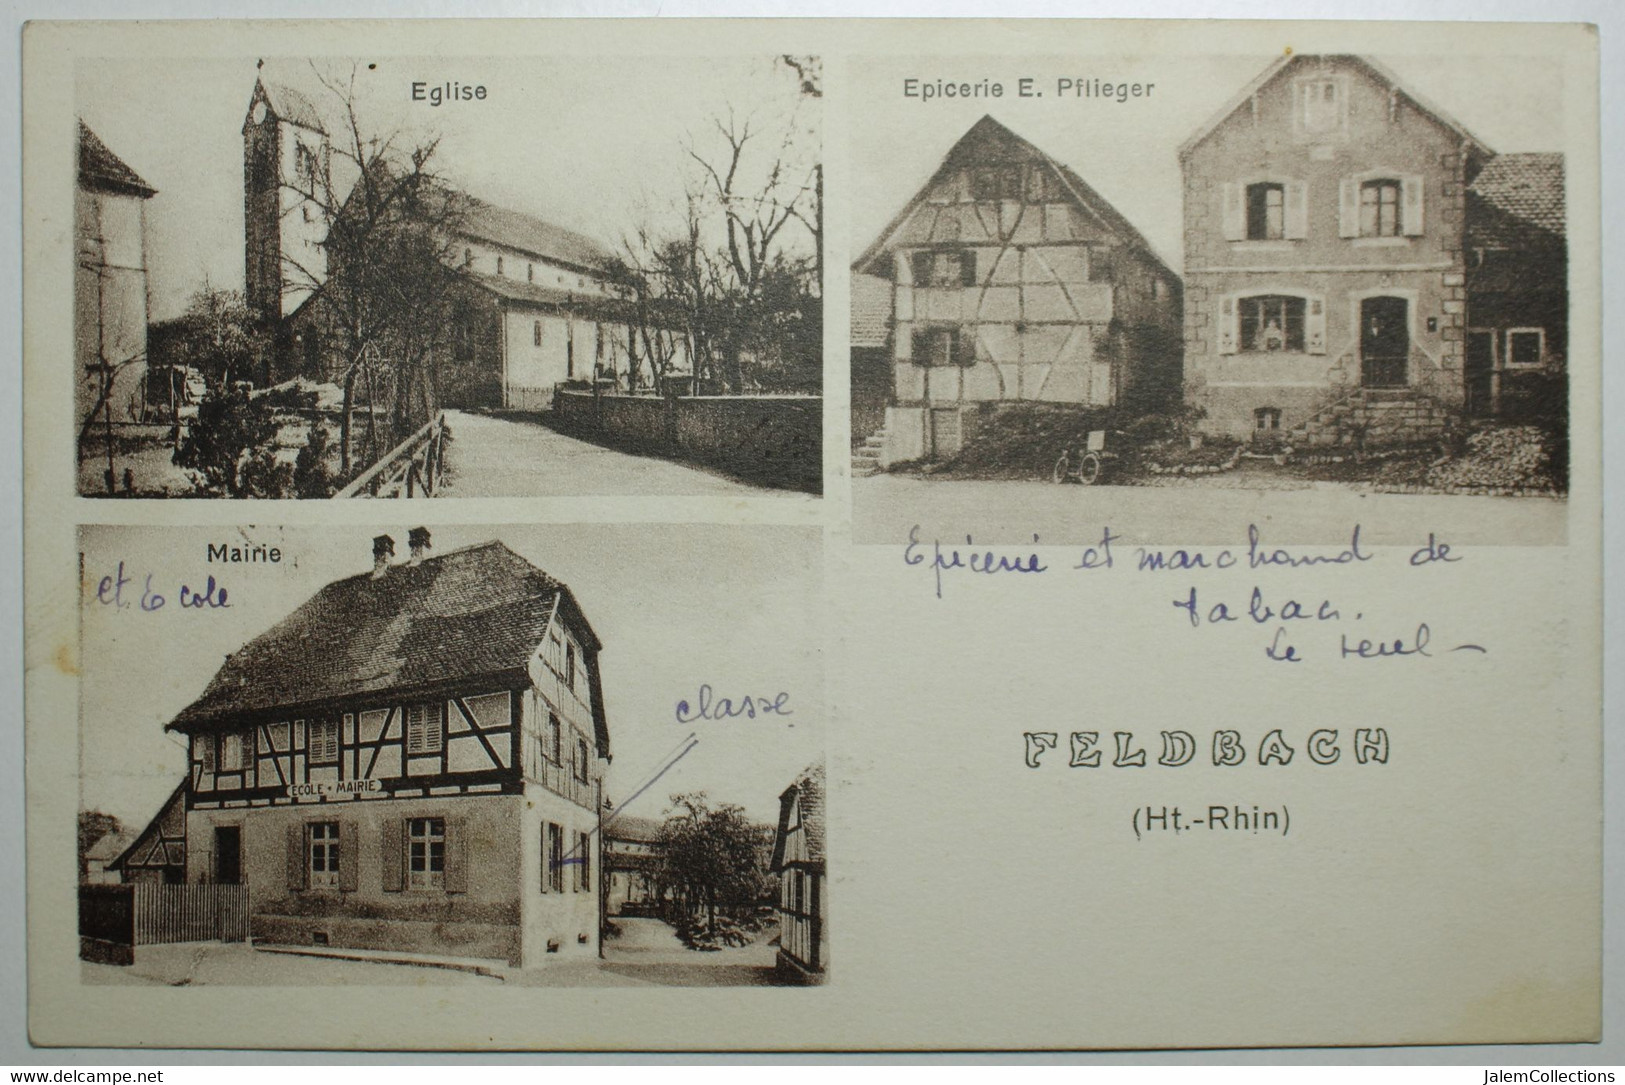 Eglise
Epicerie E. Pflieger
Mairie
et Ecole
ECOLE • MAIRIE
classe
Epicerie et marchand de
tabac.
Le seul -
FELDBACH
(Ht.-Rhin)
Website: https://www.delcampe.net
JalemCollections